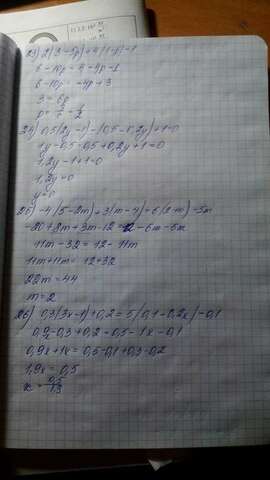 23) 2(3-5p)=4(1-p)-1
6-10p=4-4p-1
6-10p=-4p+3
3=6p
p=3/6=1/2
24) 0,5(2y-1)-(0,5-0,2y)+1=0
1y-0,5-0,5+0,2y+1=0
1,2y-1+1=0
1,2y=0
y=0
25) -4(5-2m)+3(m-4)=6(2-m)-5m
-20+8m+3m-12=12-6m-5m
11m-32=12-11m
11m+11m=12+32
22m=44
m=2
26) 0,3(3x-1)+0,2=5(0,1-0,2x)-0,1
0,9x-0,3+0,2=0,5-1x-0,1
0,9x+1x=0,5-0,1+0,3-0,2
1,9x=0,5